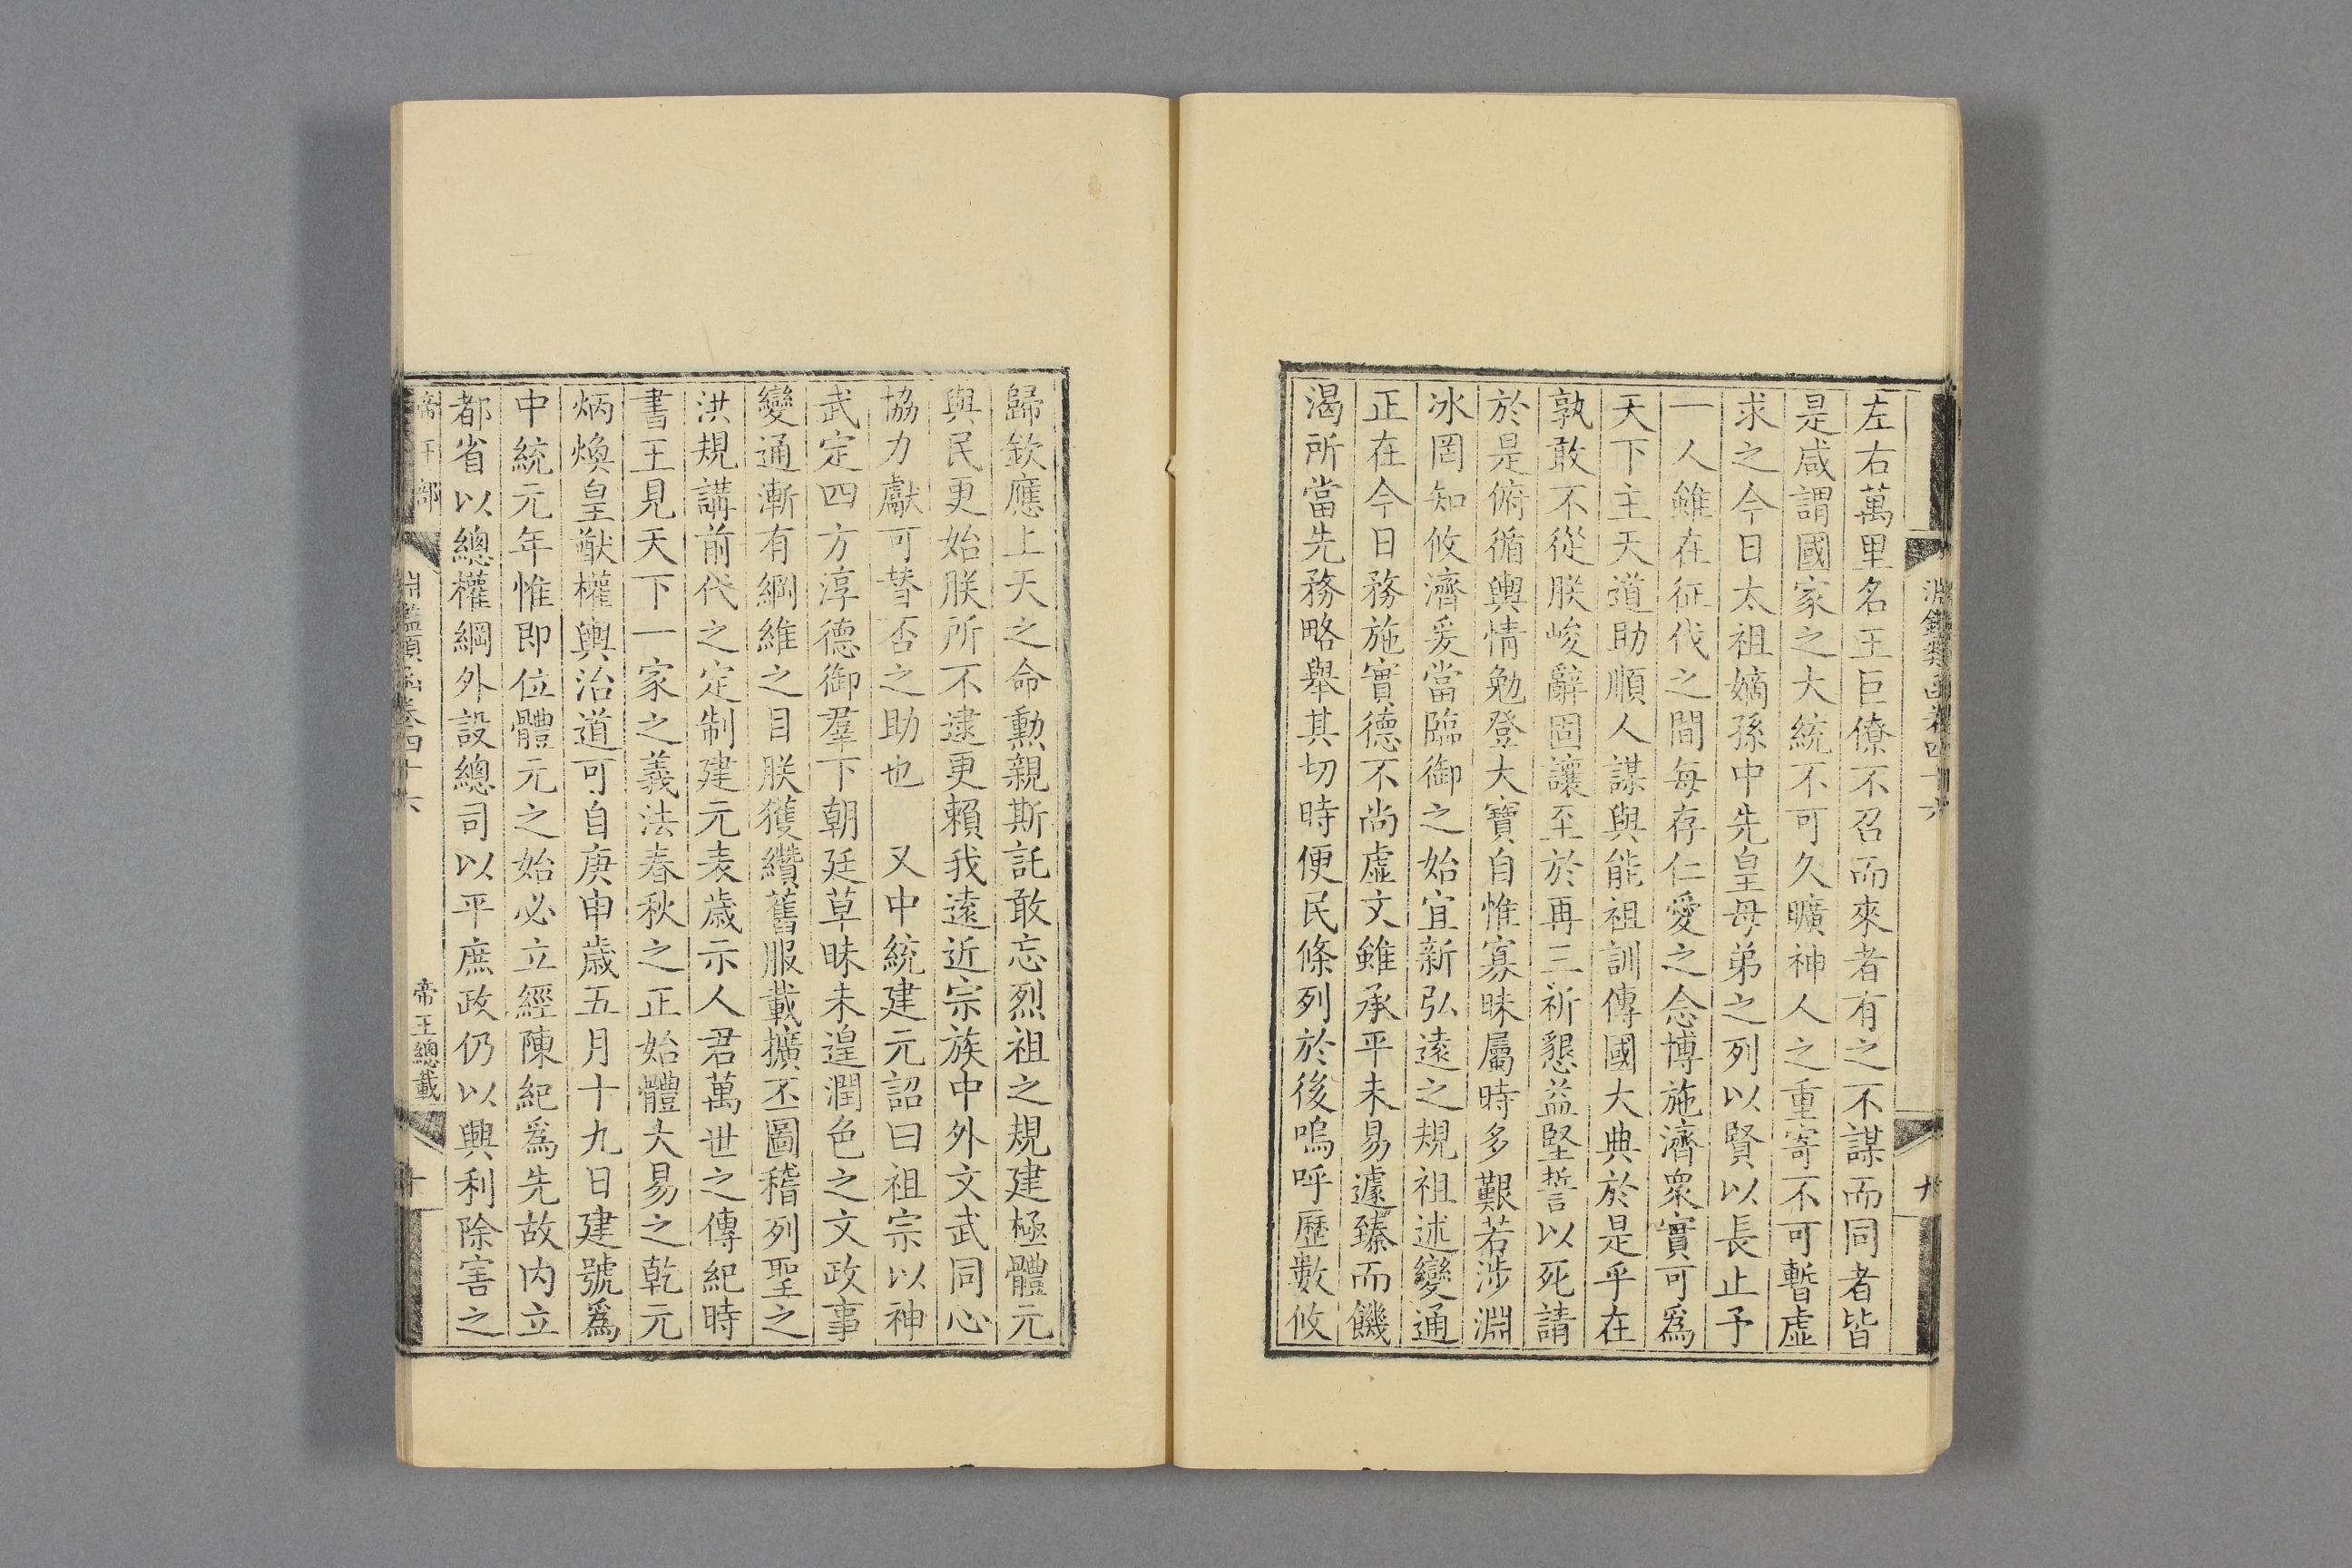 左右萬里名王巨僚不召而來者有之不謀而同者皆
是咸謂國家之大統不可久曠神人之重寄不可暫虛
求之今日太祖嫡孫中先皇母弟之列以賢以長止予
一人雖在征伐之間每存仁愛之念博施濟衆實可爲
天下主天道助順人謀與能祖訓傳國大典於是乎在
孰敢不從朕峻辭固讓至於再三祈懇益堅誓以死請
於是俯循輿情勉登大寶自惟寡昧屬時多艱若涉淵
冰罔知攸濟爰當臨御之始宜新弘遠之規祖述變通
正在今日務施實德不尚虛文雖承平未易遽臻而饑
渴所當先務略舉其切時便民條列於後嗚呼歷數攸
歸欽應上天之命勳親斯託敢忘烈祖之規建極體元
與民更始朕所不逮更賴我遠近宗族中外文武同心
協力獻可替否之助也　又中統建元詔曰祖宗以神
武定四方淳德御羣下朝廷草昧未遑潤色之文政事
變通漸有綱維之目朕獲纘舊服載擴丕圖稽列聖之
洪規講前代之定制建元表歲示人君萬世之傳紀時
書王見天下一家之義法春秋之正始體大易之乾元
炳煥皇猷權輿治道可自庚申歲五月十九日建號爲
中統元年惟即位體元之始必立經陳紀爲先故内立
都省以總權綱外設總司以平庶政仍以興利除害之
帝王部
淵鑑類函卷四十六
帝王總載
十